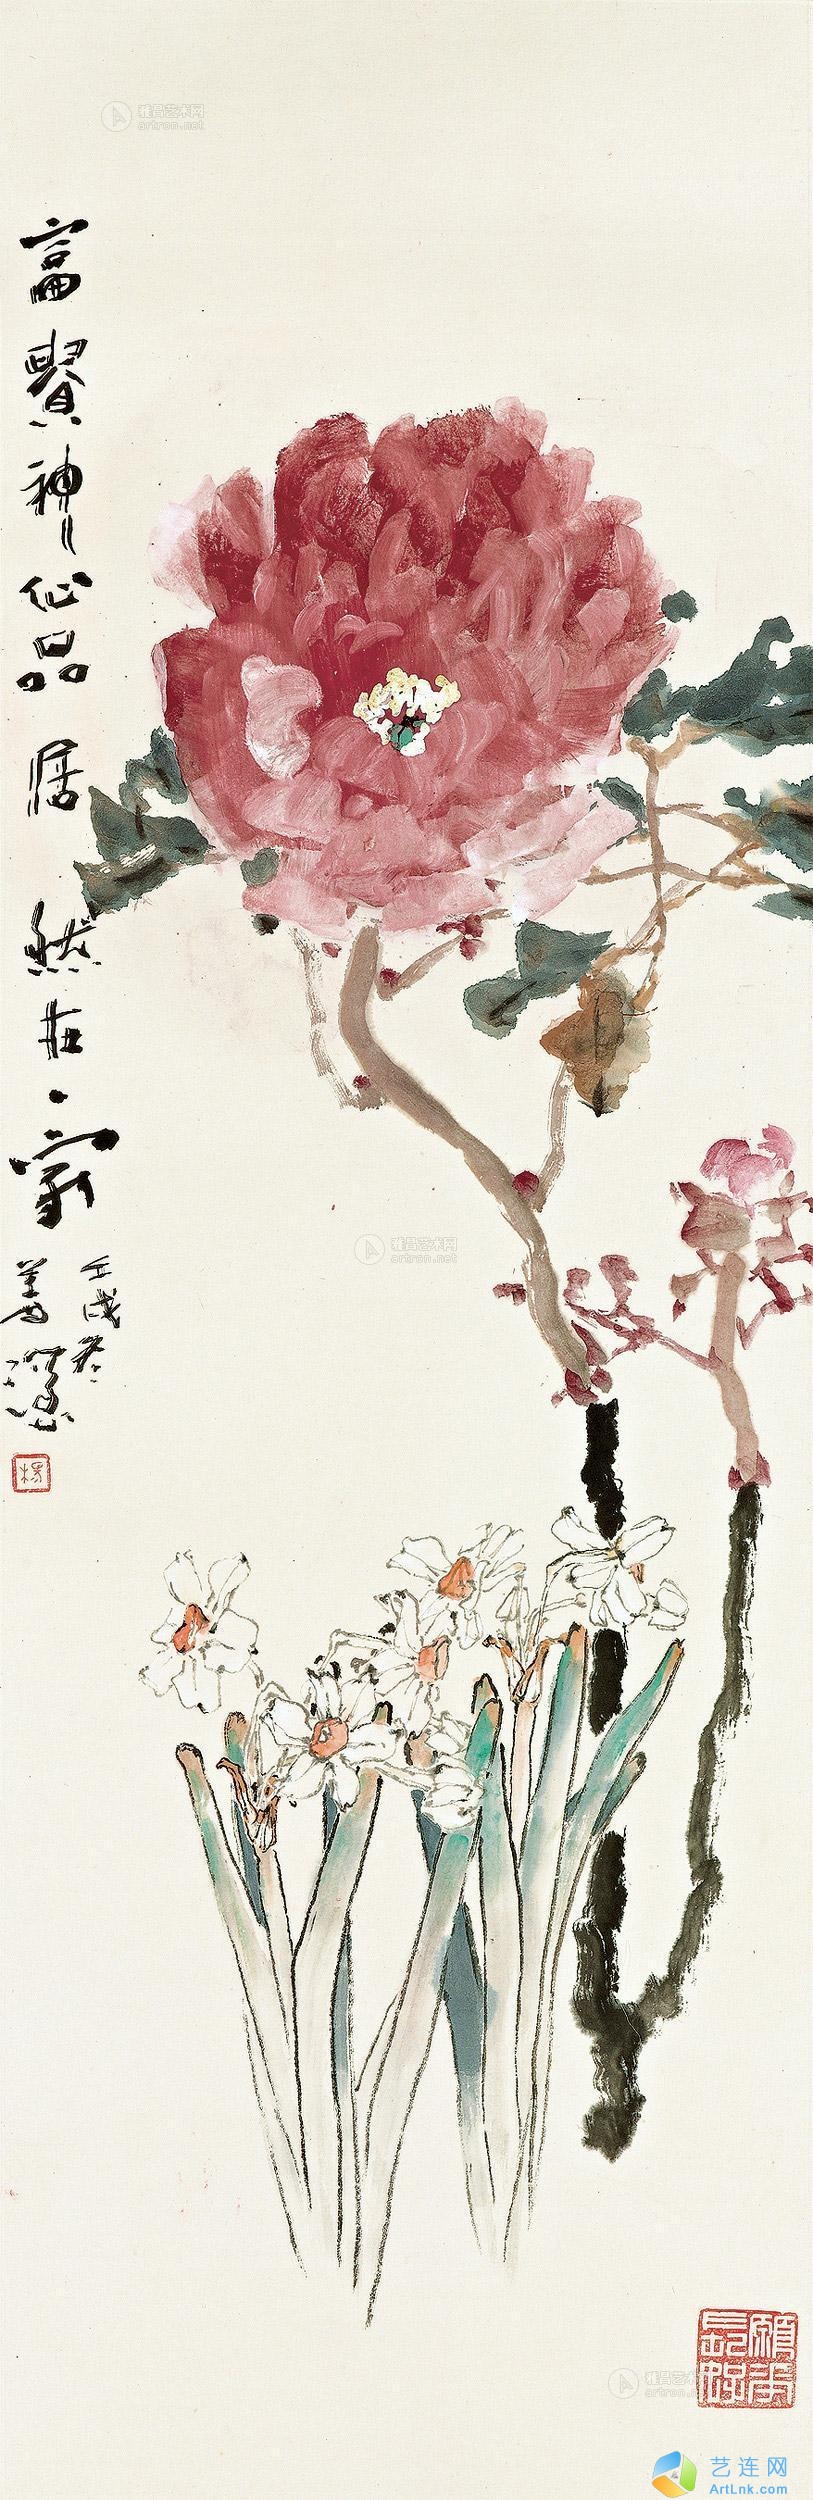 雅昌艺术网
artron.net
富贵神仙品居然在一家
壬戌冬
善深
杨
雅昌艺术网
artron.net
雅昌艺术网
artron.net
艺连网
ArtLnk.com